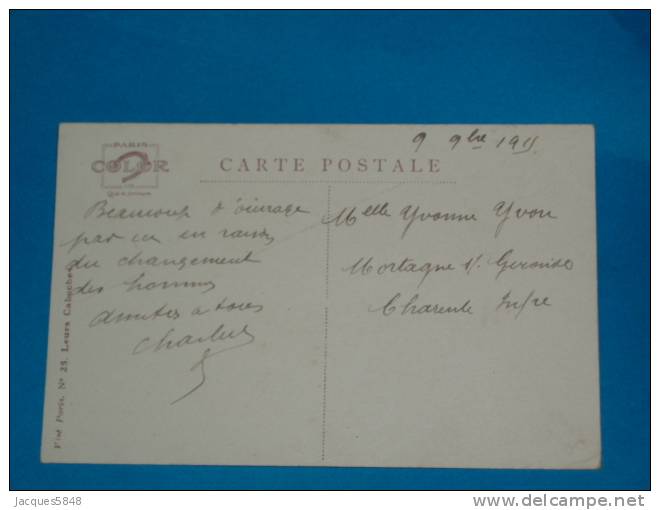 PARIS
COLOR
CARTE POSTALE
9 9bre 1915
Beaucoup d'ouvrage
par ici en raison
du changement
des hommes
Amitiés à tous
Charles
Melle Yvonne Yvon
Mortagne s/ Gironde
Charente Infre
Visé Paris, No 25. Leurs Caboches
Jacques5848
delcampe.net